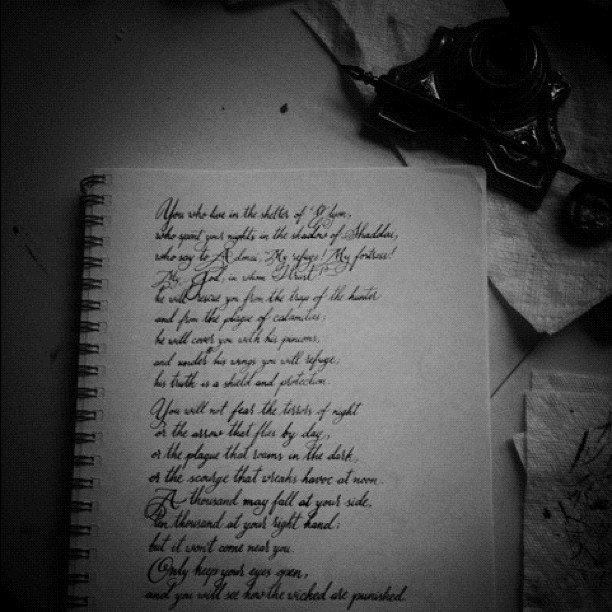 You who live in the shelter of 'Elyon,
who spent your nights in the shadow of Shaddai,
who say to Adonai, "My refuge! My fortress!
My God, in whom I trust!"
he will rescue you from the trap of the hunter
and from the plague of calamities;
he will cover you with his pinions,
and under his wings you will refuge;
his truth is a shield and protection.
You will not fear the terrors of night
or the arrow that flies by day,
or the plague that roams in the dark,
or the scourge that wreaks havoc at noon.
A thousand may fall at your side,
Ten thousand at your right hand;
but it won't come near you.
Only keep your eyes open,
and you will see how the wicked are punished